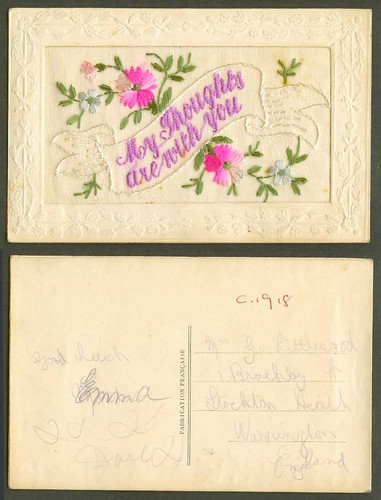 My Thoughts
are with you
c. 1918
Good Luck
Emma
FABRICATION FRANÇAISE
Mrs G. Littlewood
1 Brackley St
Stockton Heath
Warrington
England